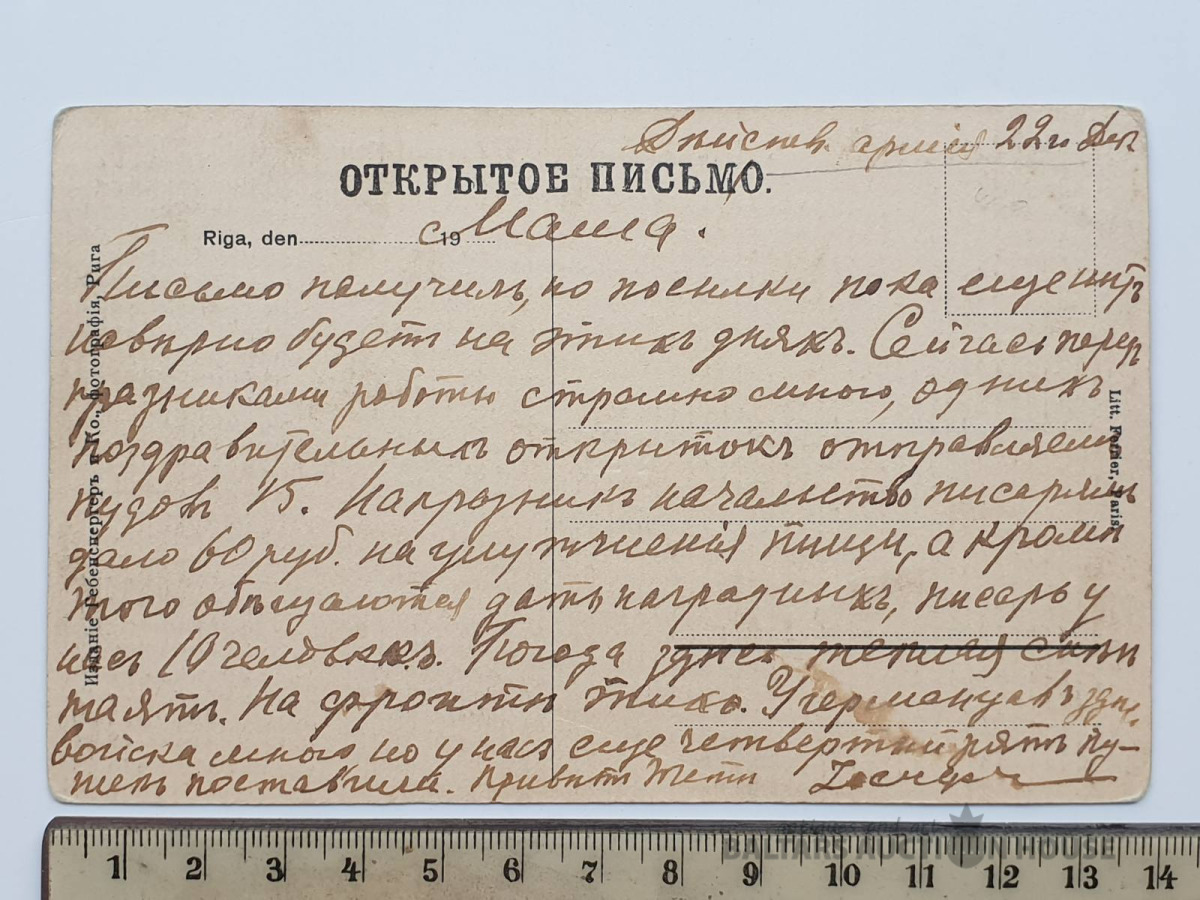 Дѣйств. армія 22го Дек
ОТКРЫТОЕ ПИСЬМО.
Riga, den 19
Маша.
Письмо получилъ, но посылки пока еще нѣтъ
навѣрно будетъ на этихъ дняхъ. Сейчасъ передъ
праздниками работы страшно много, однихъ
поздравительныхъ открытокъ отправляемъ
пудовъ 15. На праздникъ начальство писарямъ
дало 60 руб. на улутчшенія пищи, а кромѣ
того обѣщаются дать наградныхъ, писарь у
насъ 10 человѣкъ. Погода здѣсь теплая снѣгъ
таятъ. На фронтѣ тихо. У германцевъ здѣсь
войска много но у насъ еще четвертый рядъ пу-
шекъ поставили. Привѣтъ Тетѣ
Изданіе Гебенспергеръ и Ко., фотографія, Рига
Litt. Fortier, Paris
BALTARS AUCTION HOUSE
1 2 3 4 5 6 7 8 9 10 11 12 13 14